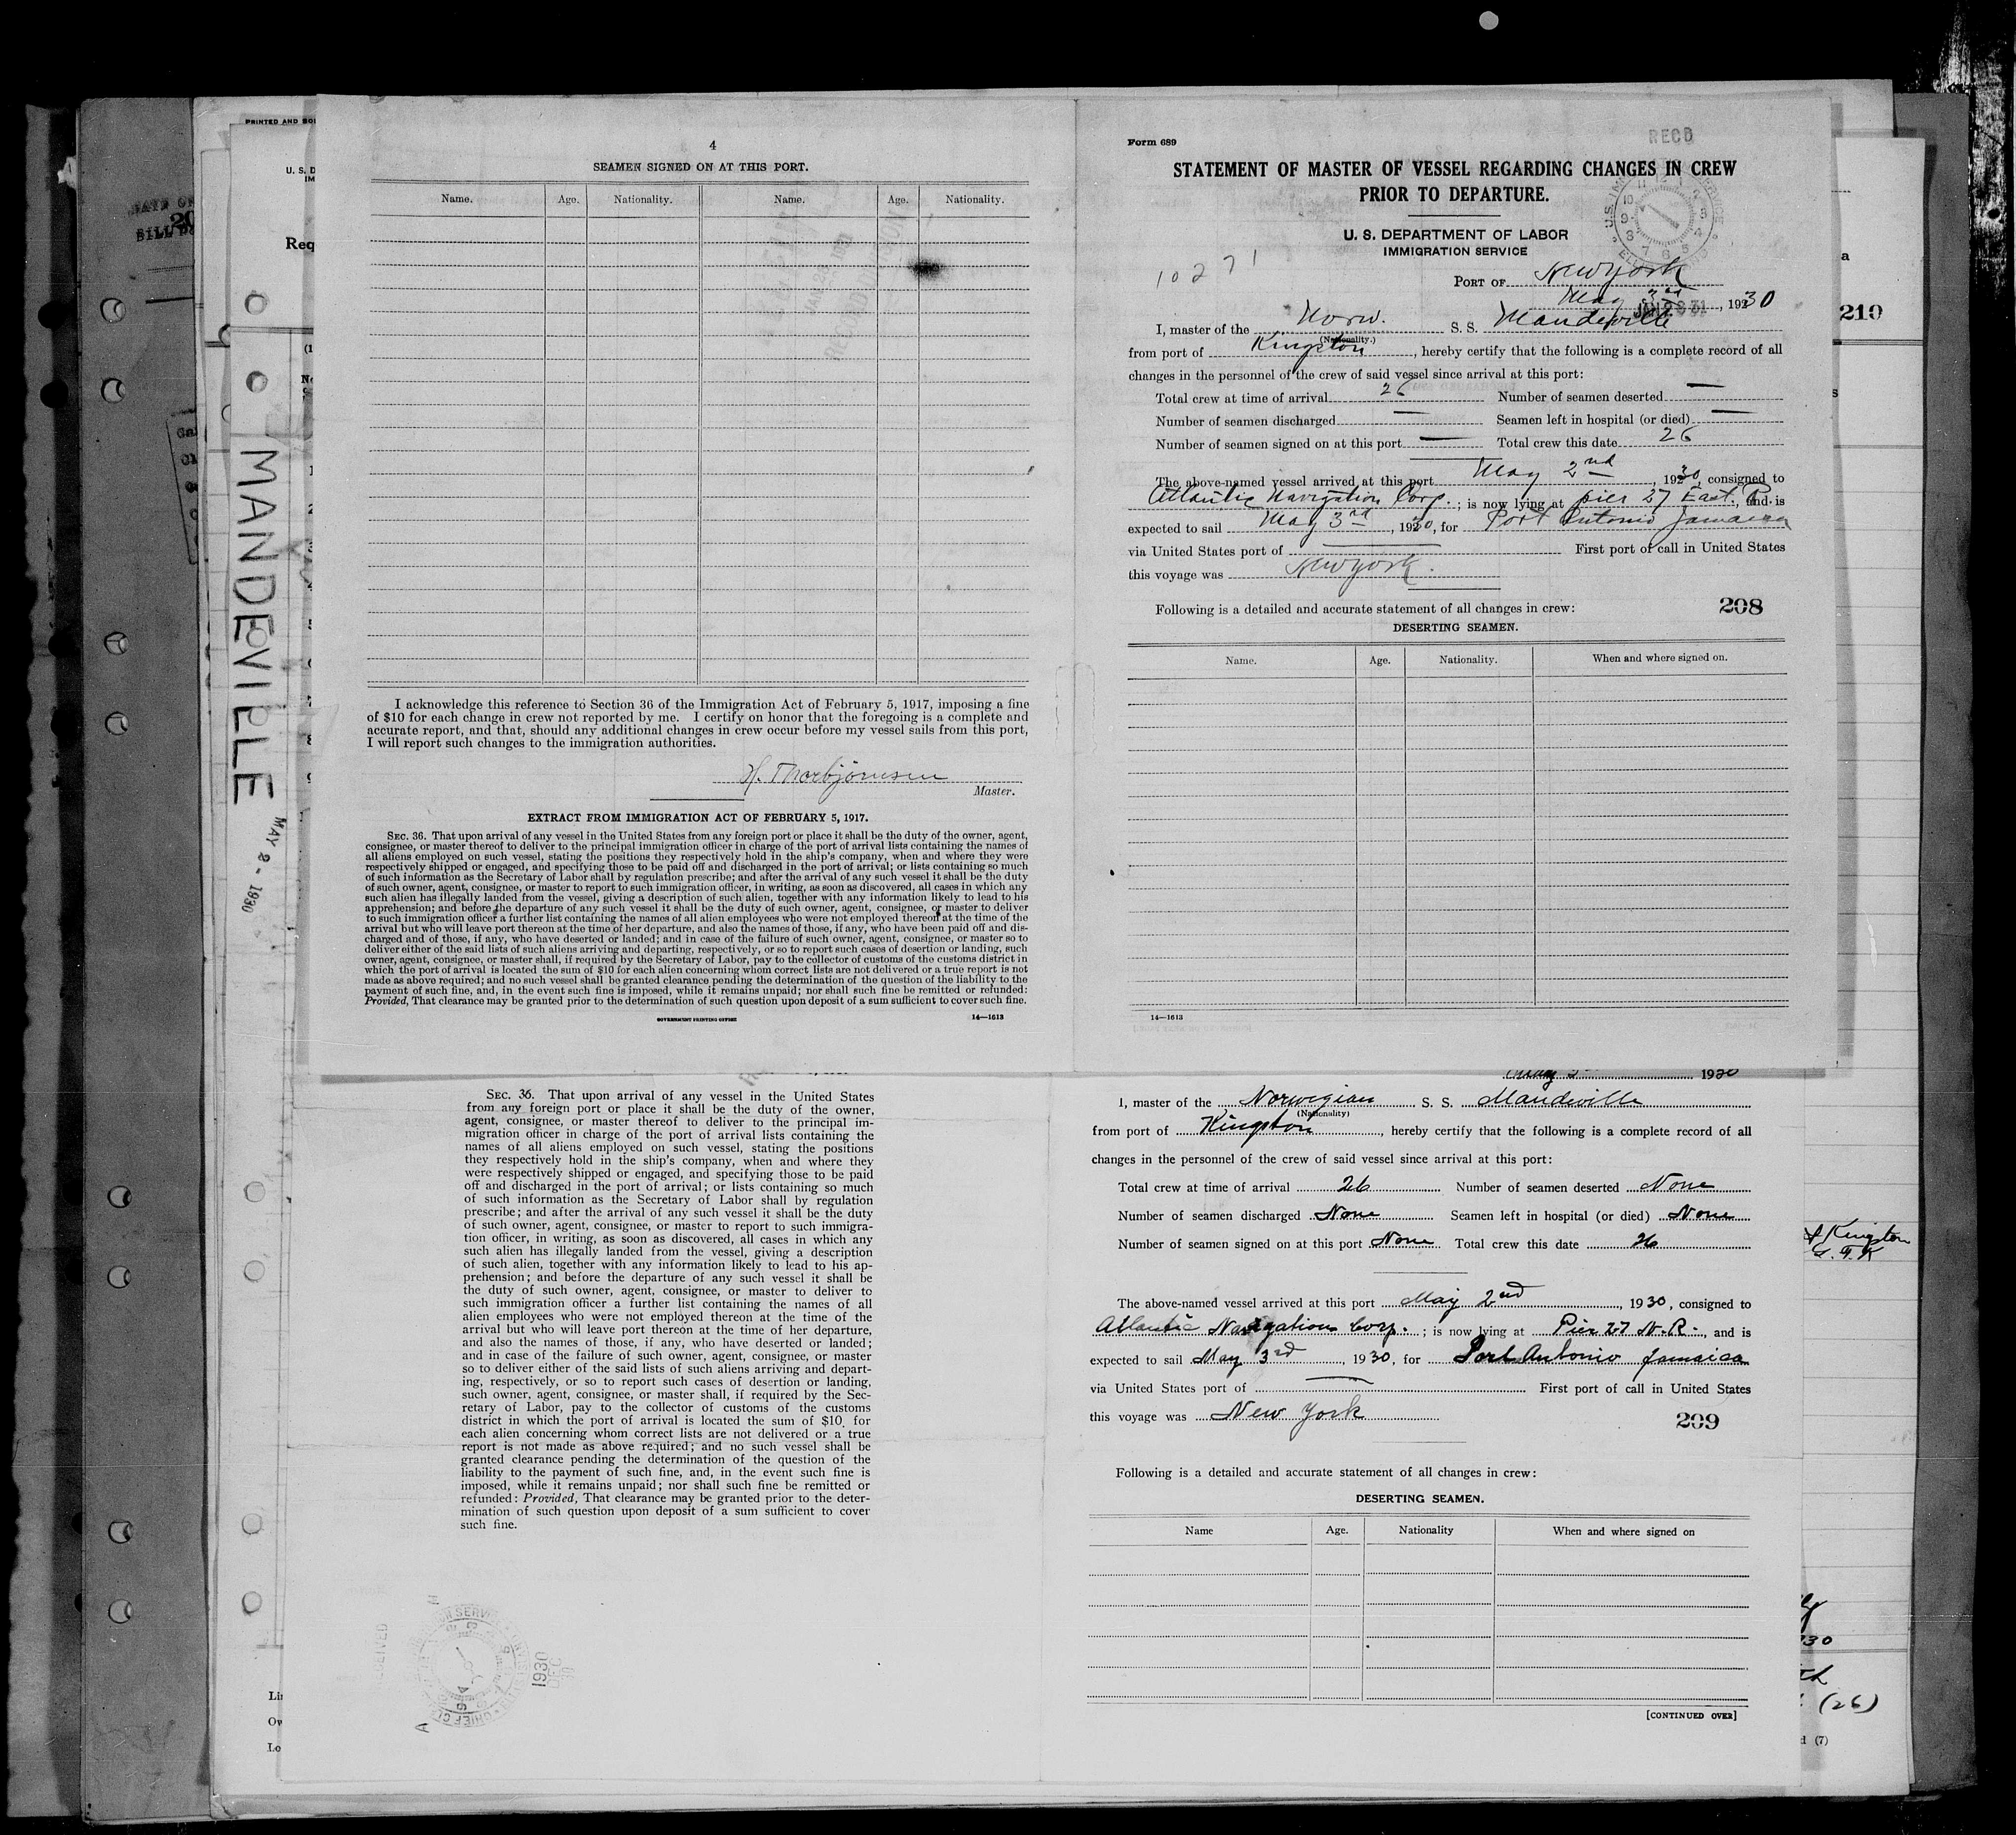 PRINTED AND
4
SEAMEN SIGNED ON AT THIS PORT.
Name. Age. Nationality. Name. Age. Nationality.
I acknowledge this reference to Section 36 of the Immigration Act of February 5, 1917, imposing a fine
of $10 for each change in crew not reported by me. I certify on honor that the foregoing is a complete and
accurate report, and that, should any additional changes in crew occur before my vessel sails from this port,
I will report such changes to the immigration authorities.
H. Thorbjörnsen
Master.
EXTRACT FROM IMMIGRATION ACT OF FEBRUARY 5, 1917.
SEC. 36. That upon arrival of any vessel in the United States from any foreign port or place it shall be the duty of the owner, agent,
consignee, or master thereof to deliver to the principal immigration officer in charge of the port of arrival lists containing the names of
all aliens employed on such vessel, stating the positions they respectively hold in the ship's company, when and where they were
respectively shipped or engaged, and specifying those to be paid off and discharged in the port of arrival; or lists containing so much
of such information as the Secretary of Labor shall by regulation prescribe; and after the arrival of any such vessel it shall be the duty
of such owner, agent, consignee, or master to report to such immigration officer, in writing, as soon as discovered, all cases in which any
such alien has illegally landed from the vessel, giving a description of such alien, together with any information likely to lead to his
apprehension; and before the departure of any such vessel it shall be the duty of such owner, agent, consignee, or master to deliver
to such immigration officer a further list containing the names of all alien employees who were not employed thereon at the time of the
arrival but who will leave port thereon at the time of her departure, and also the names of those, if any, who have been paid off and dis-
charged and of those, if any, who have deserted or landed; and in case of the failure of such owner, agent, consignee, or master so to
deliver either of the said lists of such aliens arriving and departing, respectively, or so to report such cases of desertion or landing, such
owner, agent, consignee, or master shall, if required by the Secretary of Labor, pay to the collector of customs of the customs district in
which the port of arrival is located the sum of $10 for each alien concerning whom correct lists are not delivered or a true report is not
made as above required; and no such vessel shall be granted clearance pending the determination of the question of the liability to the
payment of such fine, and, in the event such fine is imposed, while it remains unpaid; nor shall such fine be remitted or refunded:
Provided, That clearance may be granted prior to the determination of such question upon deposit of a sum sufficient to cover such fine.
GOVERNMENT PRINTING OFFICE 14—1613
Form 689
RECD
STATEMENT OF MASTER OF VESSEL REGARDING CHANGES IN CREW
PRIOR TO DEPARTURE.
U. S. DEPARTMENT OF LABOR
IMMIGRATION SERVICE
10271
PORT OF New York
May 3rd, 1930
I, master of the Norw. S. S. Mandeville
(Nationality.)
from port of Kingston, hereby certify that the following is a complete record of all
changes in the personnel of the crew of said vessel since arrival at this port:
Total crew at time of arrival 26 Number of seamen deserted —
Number of seamen discharged — Seamen left in hospital (or died) —
Number of seamen signed on at this port — Total crew this date 26
The above-named vessel arrived at this port May 2nd, 1930, consigned to
Atlantic Navigation Corp.; is now lying at pier 27 East. R., and is
expected to sail May 3rd, 1930, for Port Antonio Jamaica
via United States port of — First port of call in United States
this voyage was New York.
Following is a detailed and accurate statement of all changes in crew: 208
DESERTING SEAMEN.
Name. Age. Nationality. When and where signed on.
14—1613
210
MANDEVILLE
MAY 2 - 1930
SEC. 36. That upon arrival of any vessel in the United States
from any foreign port or place it shall be the duty of the owner,
agent, consignee, or master thereof to deliver to the principal im-
migration officer in charge of the port of arrival lists containing the
names of all aliens employed on such vessel, stating the positions
they respectively hold in the ship's company, when and where they
were respectively shipped or engaged, and specifying those to be paid
off and discharged in the port of arrival; or lists containing so much
of such information as the Secretary of Labor shall by regulation
prescribe; and after the arrival of any such vessel it shall be the duty
of such owner, agent, consignee, or master to report to such immigra-
tion officer, in writing, as soon as discovered, all cases in which any
such alien has illegally landed from the vessel, giving a description
of such alien, together with any information likely to lead to his ap-
prehension; and before the departure of any such vessel it shall be
the duty of such owner, agent, consignee, or master to deliver to
such immigration officer a further list containing the names of all
alien employees who were not employed thereon at the time of the
arrival but who will leave port thereon at the time of her departure,
and also the names of those, if any, who have deserted or landed;
and in case of the failure of such owner, agent, consignee, or master
so to deliver either of the said lists of such aliens arriving and depart-
ing, respectively, or so to report such cases of desertion or landing,
such owner, agent, consignee, or master shall, if required by the Sec-
retary of Labor, pay to the collector of customs of the customs
district in which the port of arrival is located the sum of $10 for
each alien concerning whom correct lists are not delivered or a true
report is not made as above required; and no such vessel shall be
granted clearance pending the determination of the question of the
liability to the payment of such fine, and, in the event such fine is
imposed, while it remains unpaid; nor shall such fine be remitted or
refunded: Provided, That clearance may be granted prior to the deter-
mination of such question upon deposit of a sum sufficient to cover
such fine.
1930
DEC
1930
I, master of the Norwegian S. S. Mandeville
(Nationality)
from port of Kingston, hereby certify that the following is a complete record of all
changes in the personnel of the crew of said vessel since arrival at this port:
Total crew at time of arrival 26 Number of seamen deserted None
Number of seamen discharged None Seamen left in hospital (or died) None
Number of seamen signed on at this port None Total crew this date 26
The above-named vessel arrived at this port May 2nd, 1930, consigned to
Atlantic Navigation Corp.; is now lying at Pier 27 N.R., and is
expected to sail May 3rd, 1930, for Port Antonio Jamaica
via United States port of — First port of call in United States
this voyage was New York
209
Following is a detailed and accurate statement of all changes in crew:
DESERTING SEAMEN.
Name Age. Nationality When and where signed on
[CONTINUED OVER]
Kingston
(26)
(7)